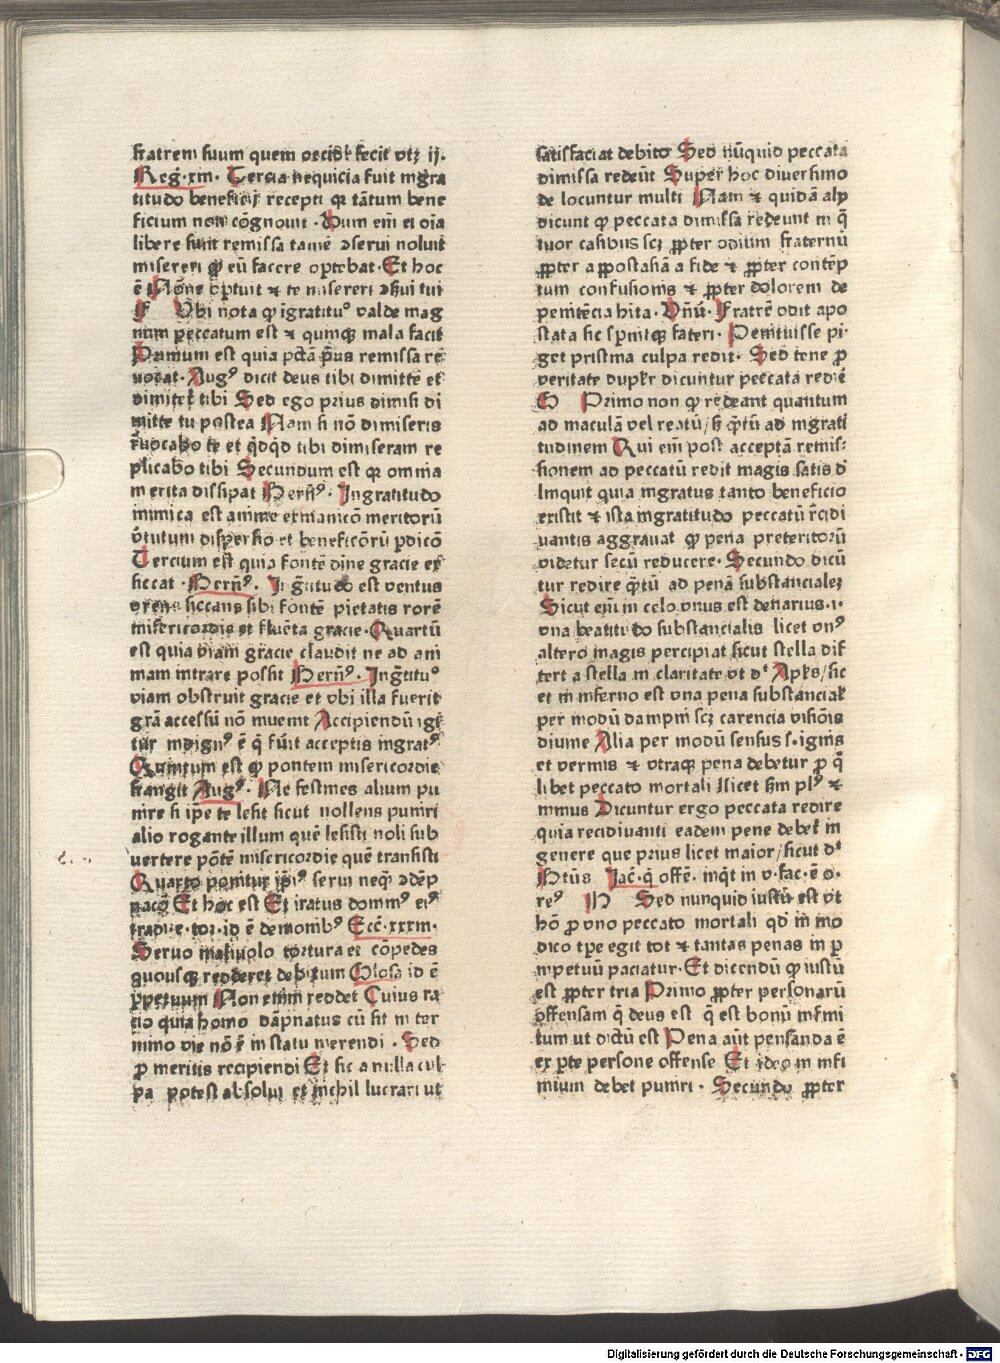 fratrem suum quem occidi fecit vtꝫ ij.
Reg̃·xııı. Tercia nequicia fuit ingra
titudo beneficij recepti qꝛ tãtum bene
ficium non cõgnouit · Dum em̃ ei oĩa
libere sunt remissa tamẽ ↄseruı noluit
misereri qͫ eũ facere optebat · Et hoc
ẽ Nõne optuit ⁊ te misereri ↄserui tui
F Vbi nota ꝙ igratituꝰ valde mag
num peccatum est ⁊ quinqꝫ mala facit
Primum est quia pctã pus remissa re
uocat· Augꝰ dicit deus tibi dimittẽ et
dimitet tibi Sed ego prius dimisi di
mitte tu postea Nam si nõ dimiseris
r̃uocabo te et q̃dq̃d tibi dimiseram re
plicabo tibi Secundum est qꝛ omnia
merita dissipat Bern̄ꝰ · Ingratitudo
inimica est anime exinanicõ meritorũ
v̓tutum disp̱ersio et beneficõrũ ꝑdicõ
Tercium est quia fontẽ diıne gracie ex
siccat · Bern̄ꝰ. In g̃titudo est ventus
vrens siccans sibi fontẽ pietatis rorẽ
misericordie et fluẽta gracie · Quartũ
est quia viam gracie claudit ne ad ani
mam intrare possit Bern̄ꝰ · Ing̃titꝰ
viam obstruit gracie et vbi illa fuerit
grã accessũ nõ inuenit Accipiendũ igi
tur indignꝰ ẽ q̃ fũit acceptis ingratꝰ
Quintum est ꝙ pontem misericordie
frangit Augꝰ · Ne festines alium pu
nire si ip̃e te lesit sicut nollens puniri
alio rogante illum quẽ lesisti noli sub
uertere põtẽ misericordie quẽ transisti
Quarto ponitur ip̃iꝰ serui neqꝫ ↄdẽp
nacõ Et hoc est Et iratus dominꝰ eiꝰ
tradi·e·tor·id ẽ demonibꝰ Ecc̃·xxxııı·
Seruo maliuolo tortura et cõpedes
quousqꝫ redderet debitum Glosa id ẽ
ꝑpetuum Non enim reddet Cuius ra
tio quia homo dãpnatus cũ sit in ter
mino vie nõ ẽ in statu merendi · Sed
ꝓ meritis recipiendi Et sic a nulla cul
pa potest absolui et nichil lucrari ut
satisfaciat debito Sed nũquid peccata
dimissa redeũt Super hoc diuersimo
de locuntur multi Nam ⁊ quidã alij
dicunt ꝙ peccata dimissa redeunt in q̃
tuor casibus scꝫ ꝓpter odium fraternũ
ꝓpter appostasiã a fide ⁊ ꝓpter contẽp
tum confusionis ⁊ ꝓpter dolorem de
penitẽcia hita · Vñũ· Fratrẽ odit apo
stata sic spnitqꝫ fateri· Penituisse pi·
get pristina culpa redit· Sed tene ꝓ
veritate duplꝛ dicuntur peccata redie
G Primo non ꝙ redeant quantum
ad maculã vel reatũ/sꝫ q̃tũ ad ingrati
tudinem Qui em̃ post acceptã remis:
sionem ad peccatũ redit magis satis d̃
linquit quia ingratus tanto beneficio
existit ⁊ ista ingratitudo peccatũ r̃cidi
uantis aggrauat ꝙ pena preteritorũ
videtur secũ reducere · Secundo dicũ
tur redire q̃tũ ad penã substancialeꝫ
Sicut em̃ in celo vnus est denarius·ı·
vna beatitudo substancialis licet vnꝰ
altero magis percipiat sicut stella dif
fert a stella in claritate vt dͭ Apl̃s/sic
et in inferno est vna pena substancial̃
per modũ dampni scꝫ carencia visiõis
diuine Alia per modũ sensus s·ignis
et vermis ⁊ vtraqꝫ pena debetur ꝓ q̃
libet peccato mortali ılicet sm̃ plꝰ ⁊
minus Dicuntur ergo peccata redire
quia recidiuanti eadem pene debet̃ in
genere que prius licet maior/sicut dͭ
Btũs Iac̃·q̃ offẽ· inq̃t in v·fac·ẽ o·
reꝰ H Sed nunquid iustũ est vt
hõ ꝓ vno peccato mortali qd̃ in mo
dico tꝑe egit tot ⁊ tantas penas in ꝑ
inpetuũ paciatur· Et dicendũ ꝙ iustũ
est ꝓpter tria Primo ꝓpter personarũ
offensam q̃ deus est q̃ est bonũ infini
tum ut dictũ est Pena aũt pensanda ẽ
ex pte persone offense Et ideo in infi
nitum debet puniri · Secundo ꝓpter
Digitalisierung gefördert durch die Deutsche Forschungsgemeinschaft - DFG